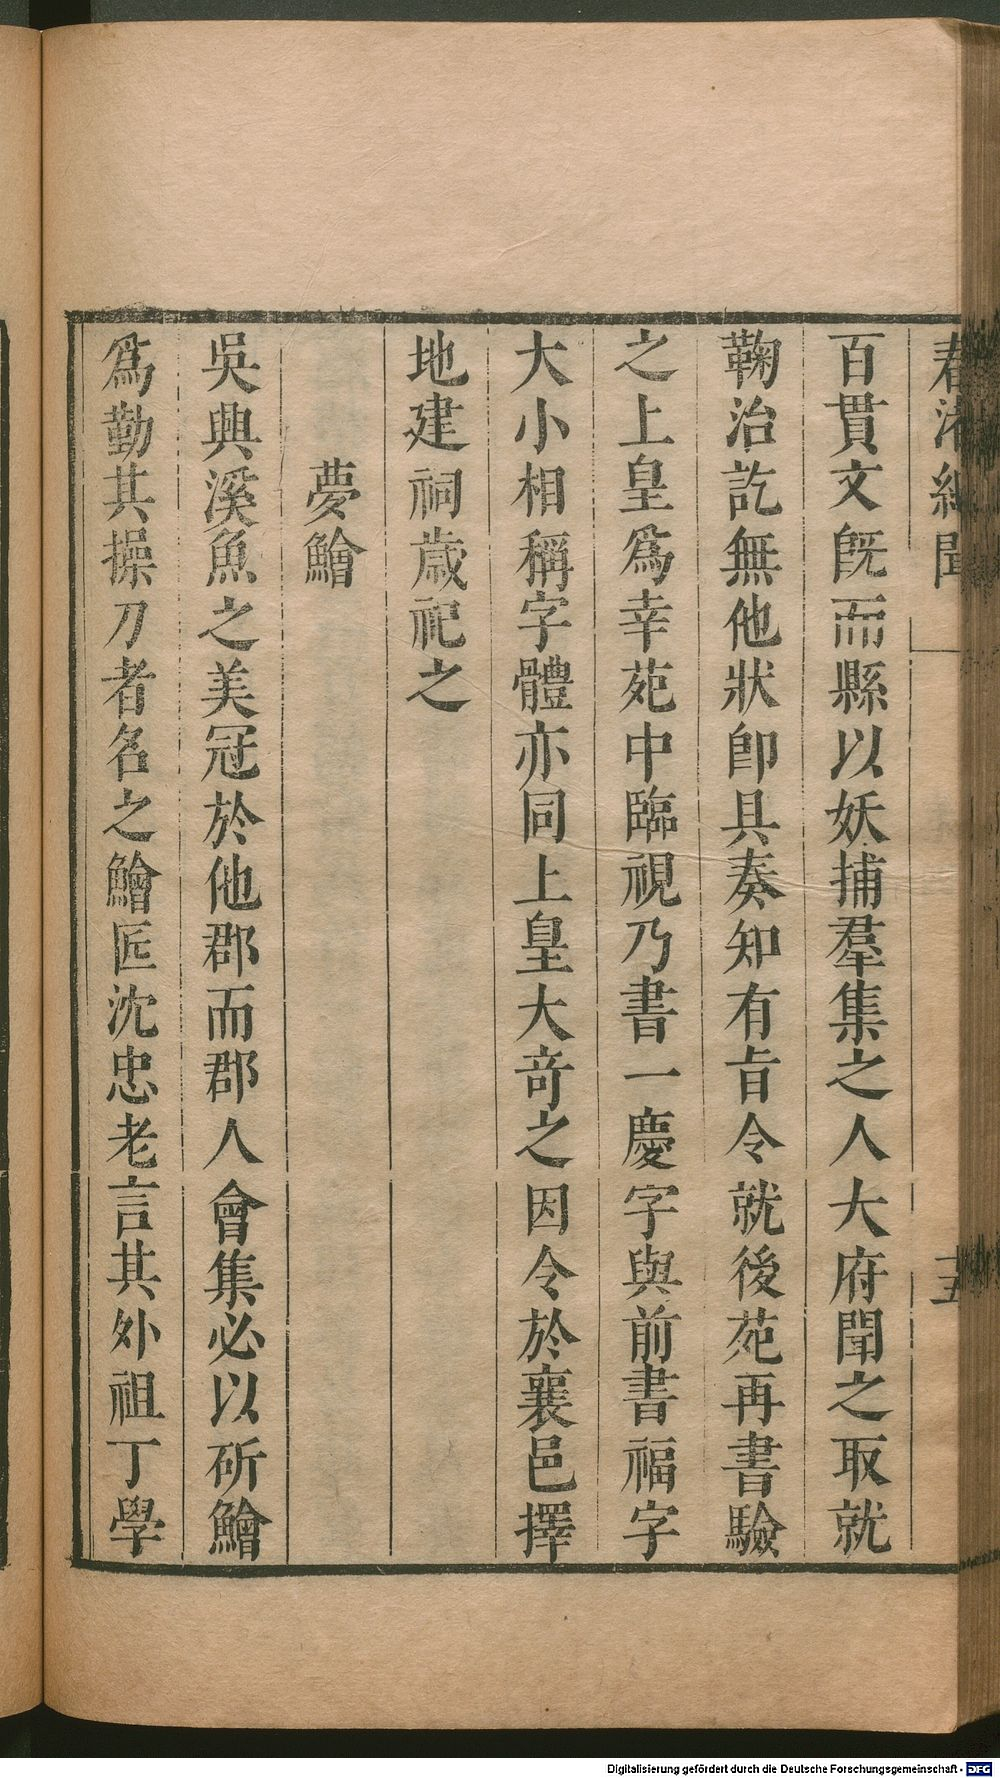 春渚紀聞
五
百貫文旣而縣以妖捕羣集之人大府聞之取就
鞠治訖無他狀卽具奏知有旨令就後苑再書驗
之上皇爲幸苑中臨視乃書一慶字與前書福字
大小相稱字體亦同上皇大竒之因令於襄邑擇
地建祠歲祀之
夢鱠
吳興溪魚之美冠於他郡而郡人會集必以斫鱠
爲勤其操刀者名之鱠匠沈忠老言其外祖丁學
Digitalisierung gefördert durch die Deutsche Forschungsgemeinschaft - DFG